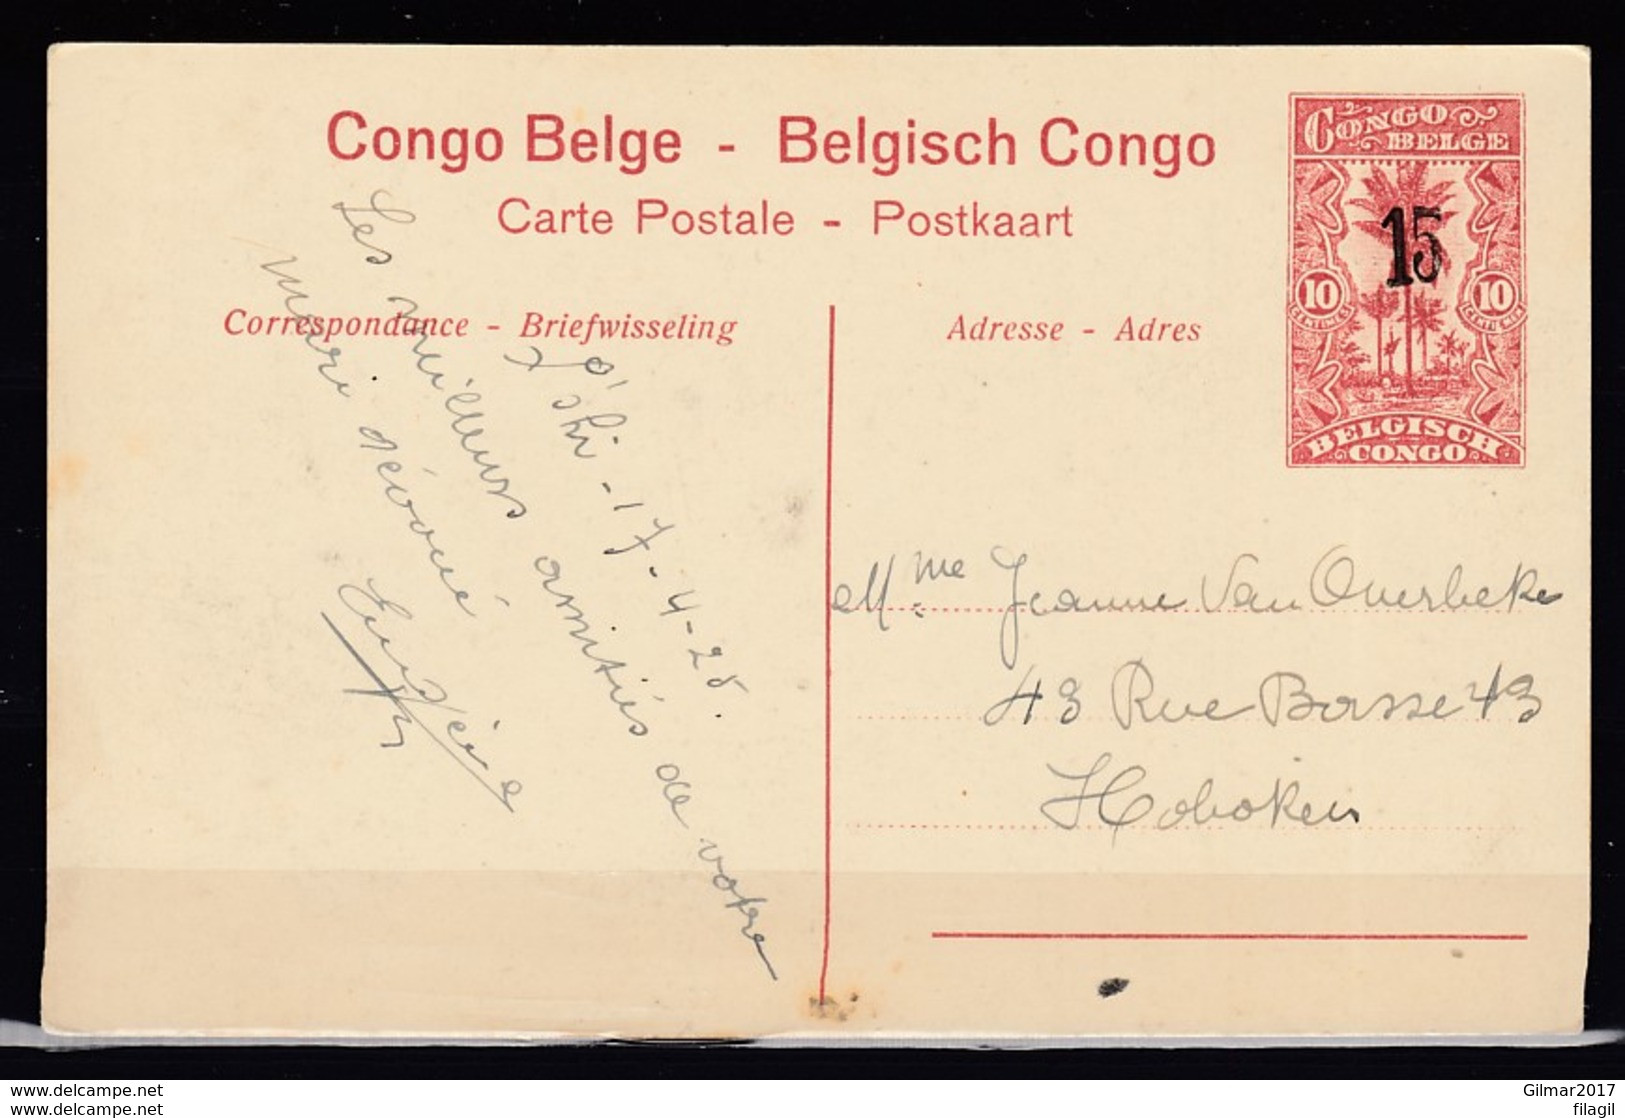 Congo Belge - Belgisch Congo
Carte Postale - Postkaart
Correspondance - Briefwisseling
Adresse - Adres
CONGO
BELGE
15
10
10
CENTIMES
CENTIMEN
BELGISCH
CONGO
E'shi - 17-4-25.
Les meilleurs amitiés de votre
mari dévoué
Mme Jeanne Van Overbeke
43 Rue Basse 43
Hoboken
www.delcampe.net
www.delcampe.net
Gilmar2017
filagil